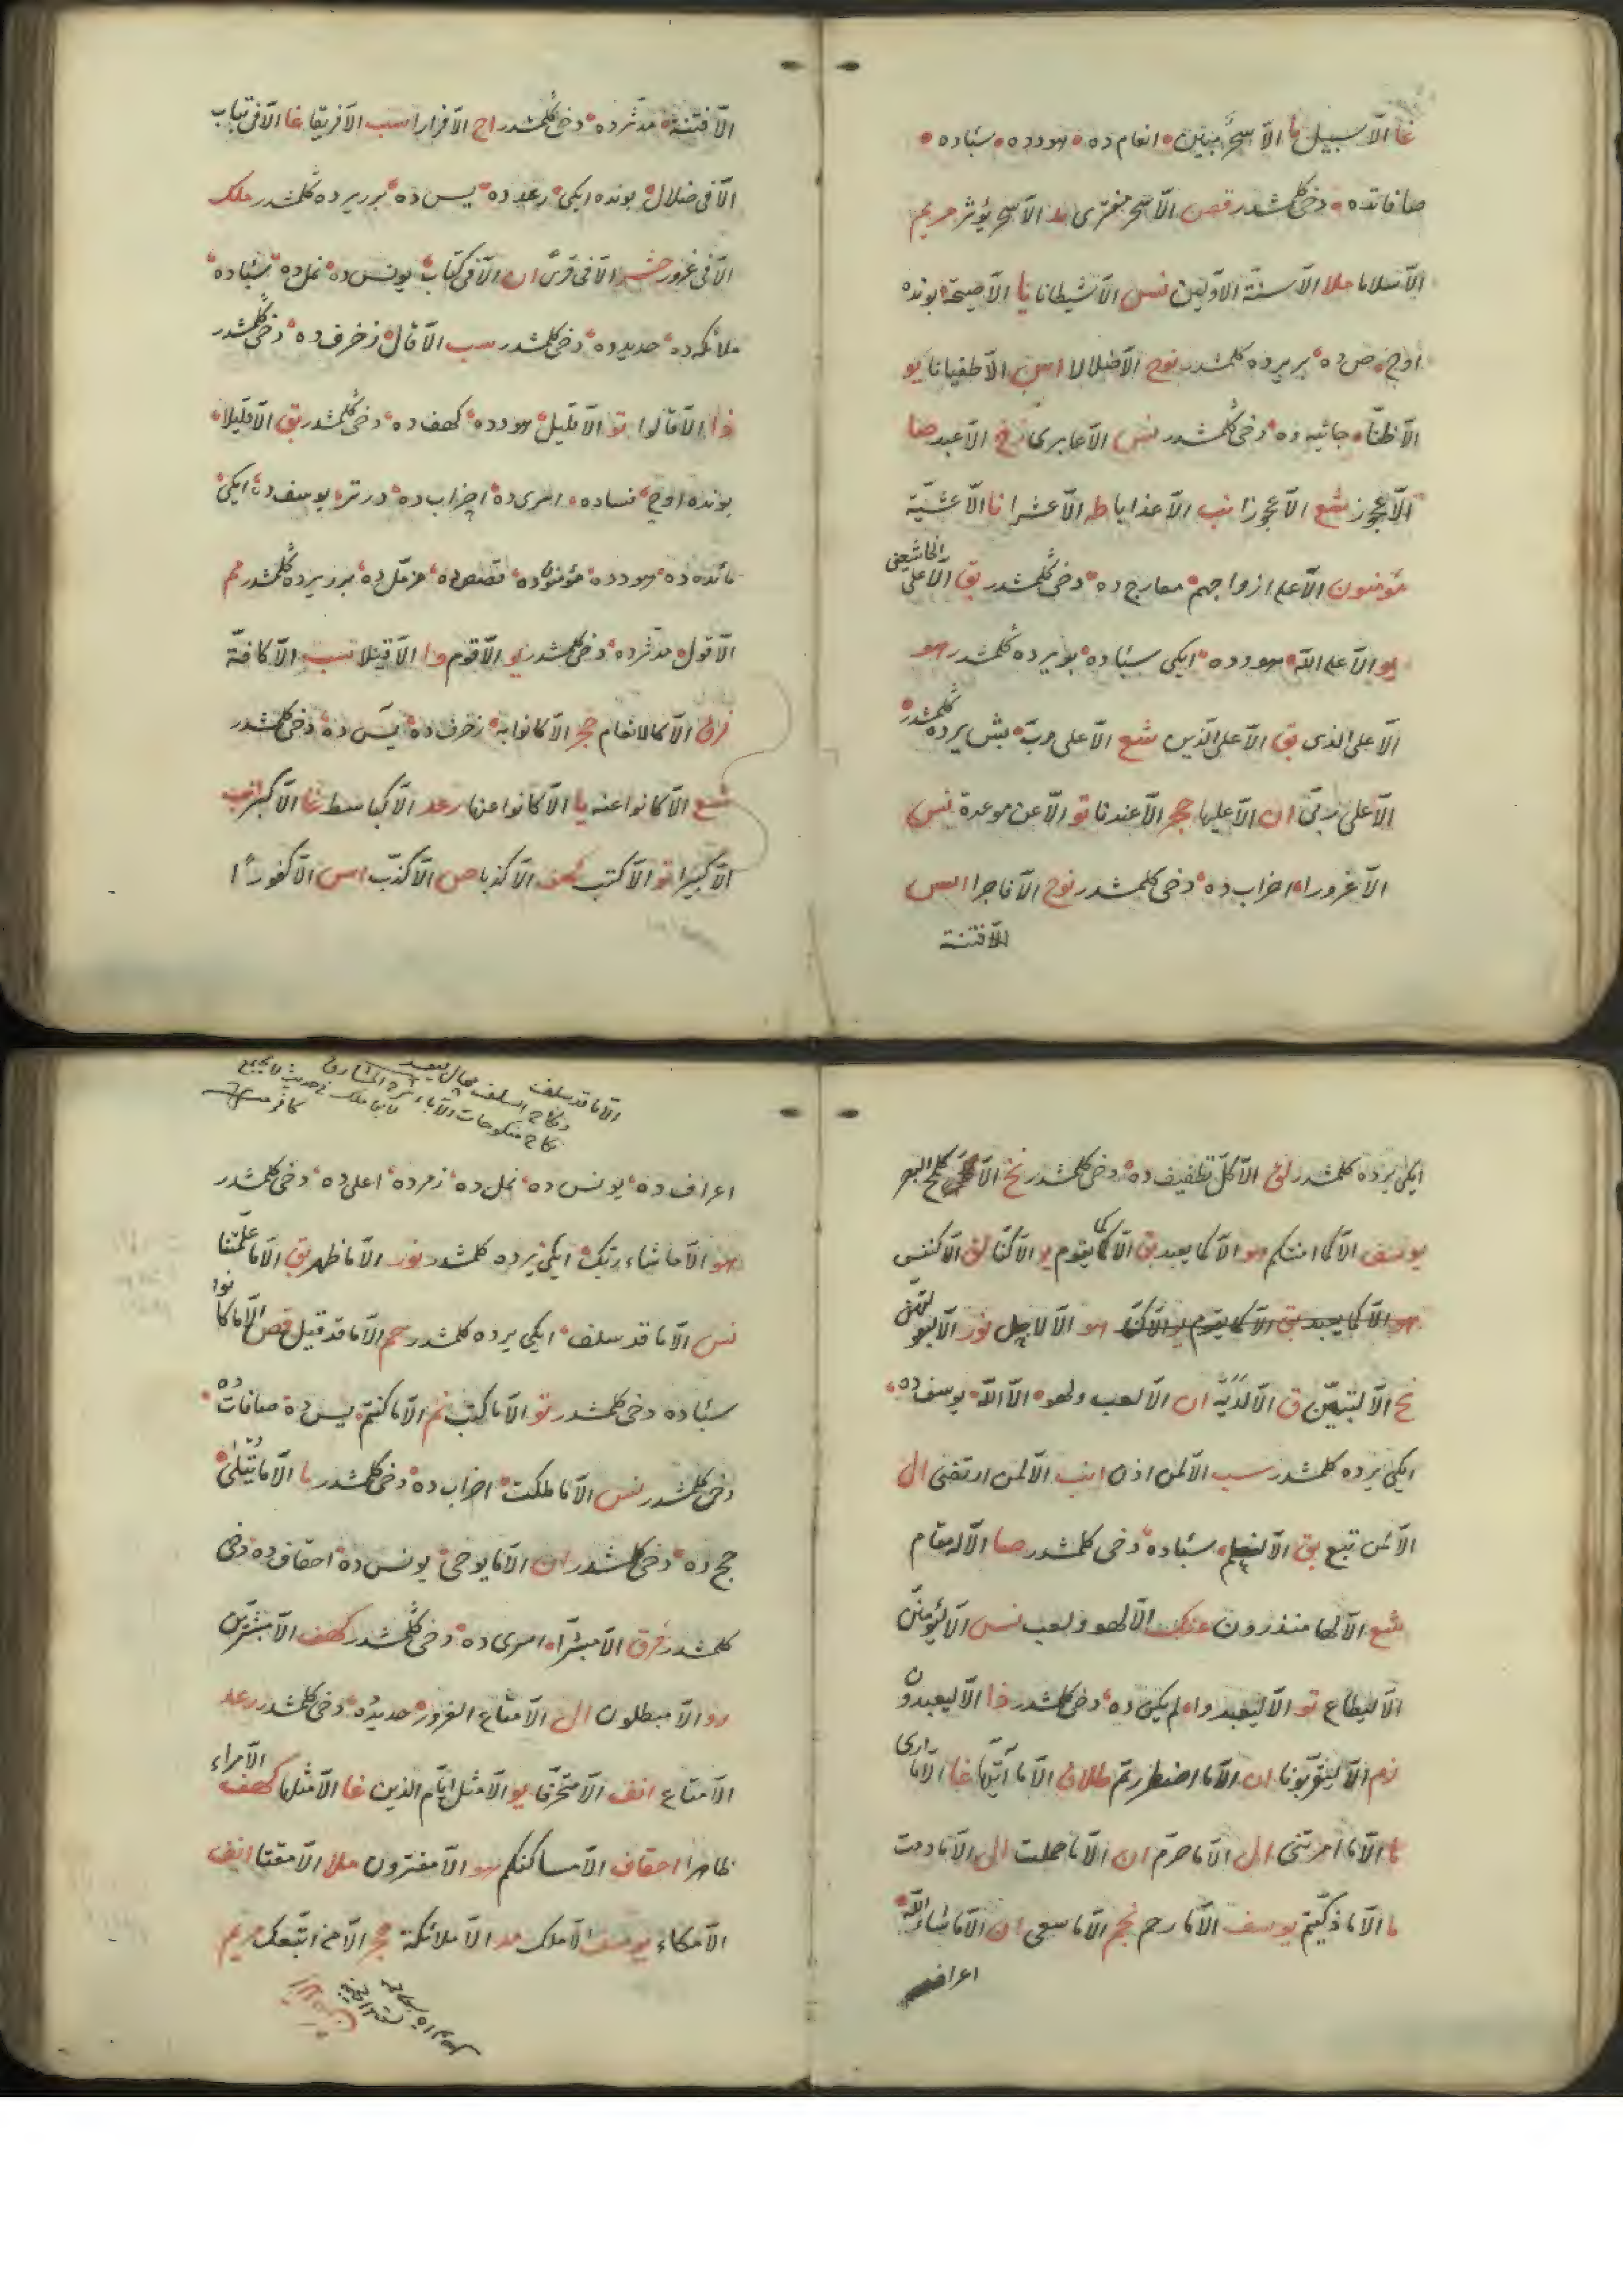 غا الّا سبيل ما الّا سحر مبين انعام ده هودده سباده
صافاتده دخی كلمشدر قصص الّا سحر مفترى مد الّا سحر يؤثر مريم
الّا سلاما ملا الّا سنة الاوّلين نس الّا شيطانا يا الّا صيحة بونده
اوج ص ده بر يرده كلمشدر نوح الّا ضلالا اس الّا طغيانا يو
الّا ظنّا جاثيه ده دخی كلمشدر نس الّا عابرى زخ الّا عبد صا
الّا عجوز شع الّا عجوزا نب الّا عذابا طه الّا عشرا نا الّا عشيّة
مؤمنون الّا على ازواجهم معارج ده دخی كلمشدر بق الّا على
الخاشعين
يو الّا على الله هودده ايكى سباده بو يرده كلمشدر هو
الّا على الذى بق الّا على الّذين شع الّا على ربّ بش يرده كلمشدر
الّا على ربّى ان الّا عليها حجر الّا عندنا تو الّا عن موعدة نس
الّا غرورا احزاب ده دخی كلمشدر نوح الّا فاجرا اس
الّا فتنة
الّا فتنة مدثرده دخی كلمشدر اح الّا فرارا سب الّا فريقا غا الّا فى تباب
الّا فى ضلال بونده ايكى رعد ده يس ده برر يرده كلمشدر ملك
الّا فى غرور حشر الّا فى قرى ان الّا فى كتاب يونس ده نمل ده سباده
ملائكه ده حديد ده دخی كلمشدر سب الّا قال زخرف ده دخی كلمشدر
ذا الّا قالوا تو الّا قليل هودده كهف ده دخی كلمشدر بق الّا قليلا
بونده اوج نساده اسرى ده احزاب ده درتر يوسف ده ايكى
مائده ده هودده مؤمنون ده قصص ده مزمل ده برر يرده كلمشدر مم
الّا قول مدثرده دخی كلمشدر يو الّا قوم وا الّا قيلا سب الّا كافّة
فرق الّا كالانعام حجر الّا كانوا به زخرف ده يس ده دخی كلمشدر
شع الّا كانوا عنه يا الّا كانوا عنها رعد الّا كباسط غا الّا كبر انب
الّا كبيرا تو الّا كتب كهف الّا كذبا ص الّا كذّب اس الّا كفورًا
ايكى يرده كلمشدر الّا كلّ تطفيف ده دخی كلمشدر نح الّا كلمح البصر
يوسف الّا كما امنتكم هو الّا كما يعبد بق الّا كما يقوم يو الّا كنّا لق الّا كنفس
هو الّا كما يعبد بق الّا كما يقوم يو الّا كنّا هو الّا لاجل نور الّا لبعولتهن
نح الّا لتبيّن ق الّا لديه ان الّا لعب ولهو الّا لله يوسف ده
ايكى يرده كلمشدر سب الّا لمن اذن انب الّا لمن ارتضى ال
الّا لمن تبع بق الّا لنعلم سباده دخی كلمشدر صا الّا له مقام
شع الّا لها منذرون عنك الّا لهو ولعب نس الّا ليؤمنن
الّا ليطاع تو الّا ليعبدوا لم يكن ده دخی كلمشدر ذا الّا ليعبدون
زم الّا ليقرّبونا ان الّا ما اضطررتم طلاق الّا ما آتيها غا الّا ما ارى
ما الّا ما امرتنى ال الّا ما حرّم ان الّا ما حملت ال الّا ما دمت
ما الّا ما ذكّيتم يوسف الّا ما رحم نجم الّا ما سعى ان الّا ما شاء الله
اعراف
الّا ما قد سلف
اعراف ده يونس ده نمل ده زمرده اعلى ده دخی كلمشدر
هو الّا ما شاء ربّك ايكى يرده كلمشدر نور الّا ما ظهر بق الّا ما علّمتنا
نس الّا ما قد سلف ايكى يرده كلمشدر حم الّا ما قد قيل قص الّا ما كانوا
سباده دخی كلمشدر تو الّا ما كتب نم الّا ما كنتم يس ده صافات ده
دخی كلمشدر نس الّا ما ملكت احزاب ده دخی كلمشدر ما الّا ما يتلى
حج ده دخی كلمشدر ان الّا ما يوحى يونس ده احقاف ده دخی
كلمشدر فرق الّا مبشّرا اسرى ده دخی كلمشدر كهف الّا مبشّرين
رو الّا مبطلون ال الّا متاع الغرور حديد ده دخی كلمشدر رعد
الّا متاع انف الّا متحرّفا يو الّا مثل ايّام الذين غا الّا مثلها كهف الّا مراء
ظاهرا احقاف الّا مساكنهم هو الّا مفترون ملا الّا مقتا انف
الّا مكاء يوسف الّا ملك مد الّا ملائكة حجر الّا من اتّبعك مريم